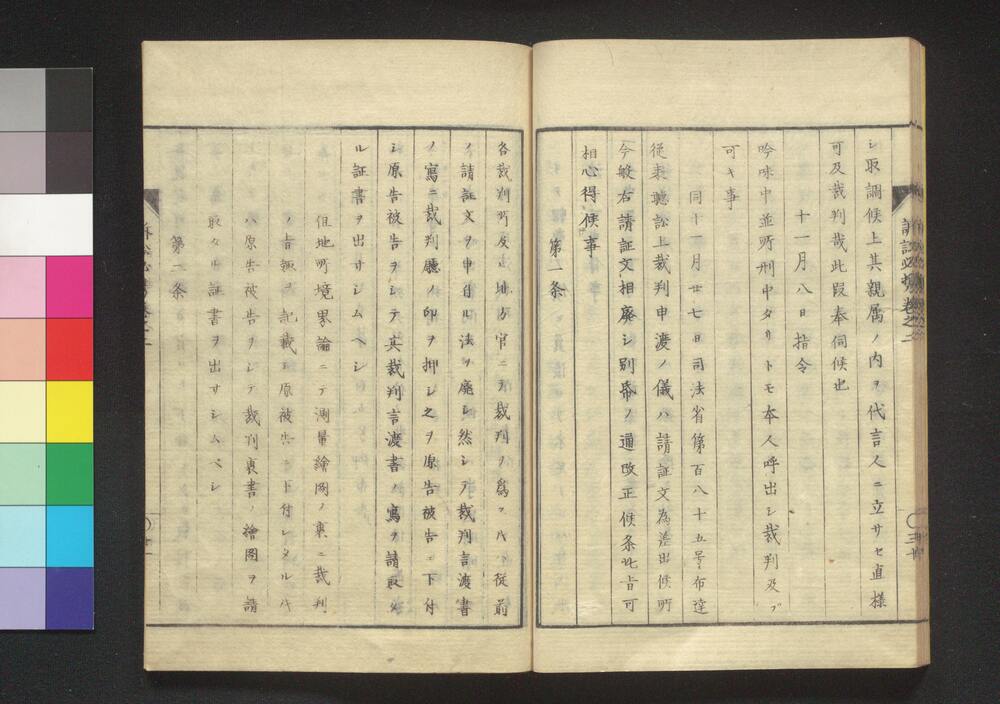 シ取調候上其親属ノ内ヲ代言人ニ立サセ直様
可及裁判哉此段奉伺候也
十一月八日指令
吟味中並所刑中タリトモ本人呼出シ裁判及ブ
可キ事
同十一月廿七日司法省第百八十五号布達
従来聴訟上裁判申渡ノ儀ハ請証文為差出候所
今般右請証文相廃シ別帋ノ通改正候条此旨可
相心得候事
第一条
各裁判所及ヒ地方官ニテ裁判ヲ為ス片ハ従前
ノ請証文ヲ申付ル法ヲ廃シ然シテ裁判言渡書
ノ寫ニ裁判廳ノ印ヲ押シ之ヲ原告被告ニ下付
シ原告被告ヲシテ其裁判言渡書ノ寫ヲ請取タ
ル証書ヲ出サシムヘシ
但地所境界論ニテ測量繪圖ノ裏ニ裁判
ノ旨趣ヲ記載シ原被告ニ下付シタル片
ハ原告被告ヲシテ裁判裏書ノ繪圖ヲ請
取タル証書ヲ出サシムベシ
第二条